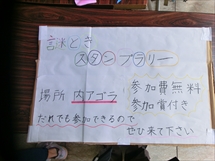 謎とき
スタンプラリー
場所 内アゴラ
参加費無料
参加賞付き
だれでも参加できるので
ぜひ来て下さい